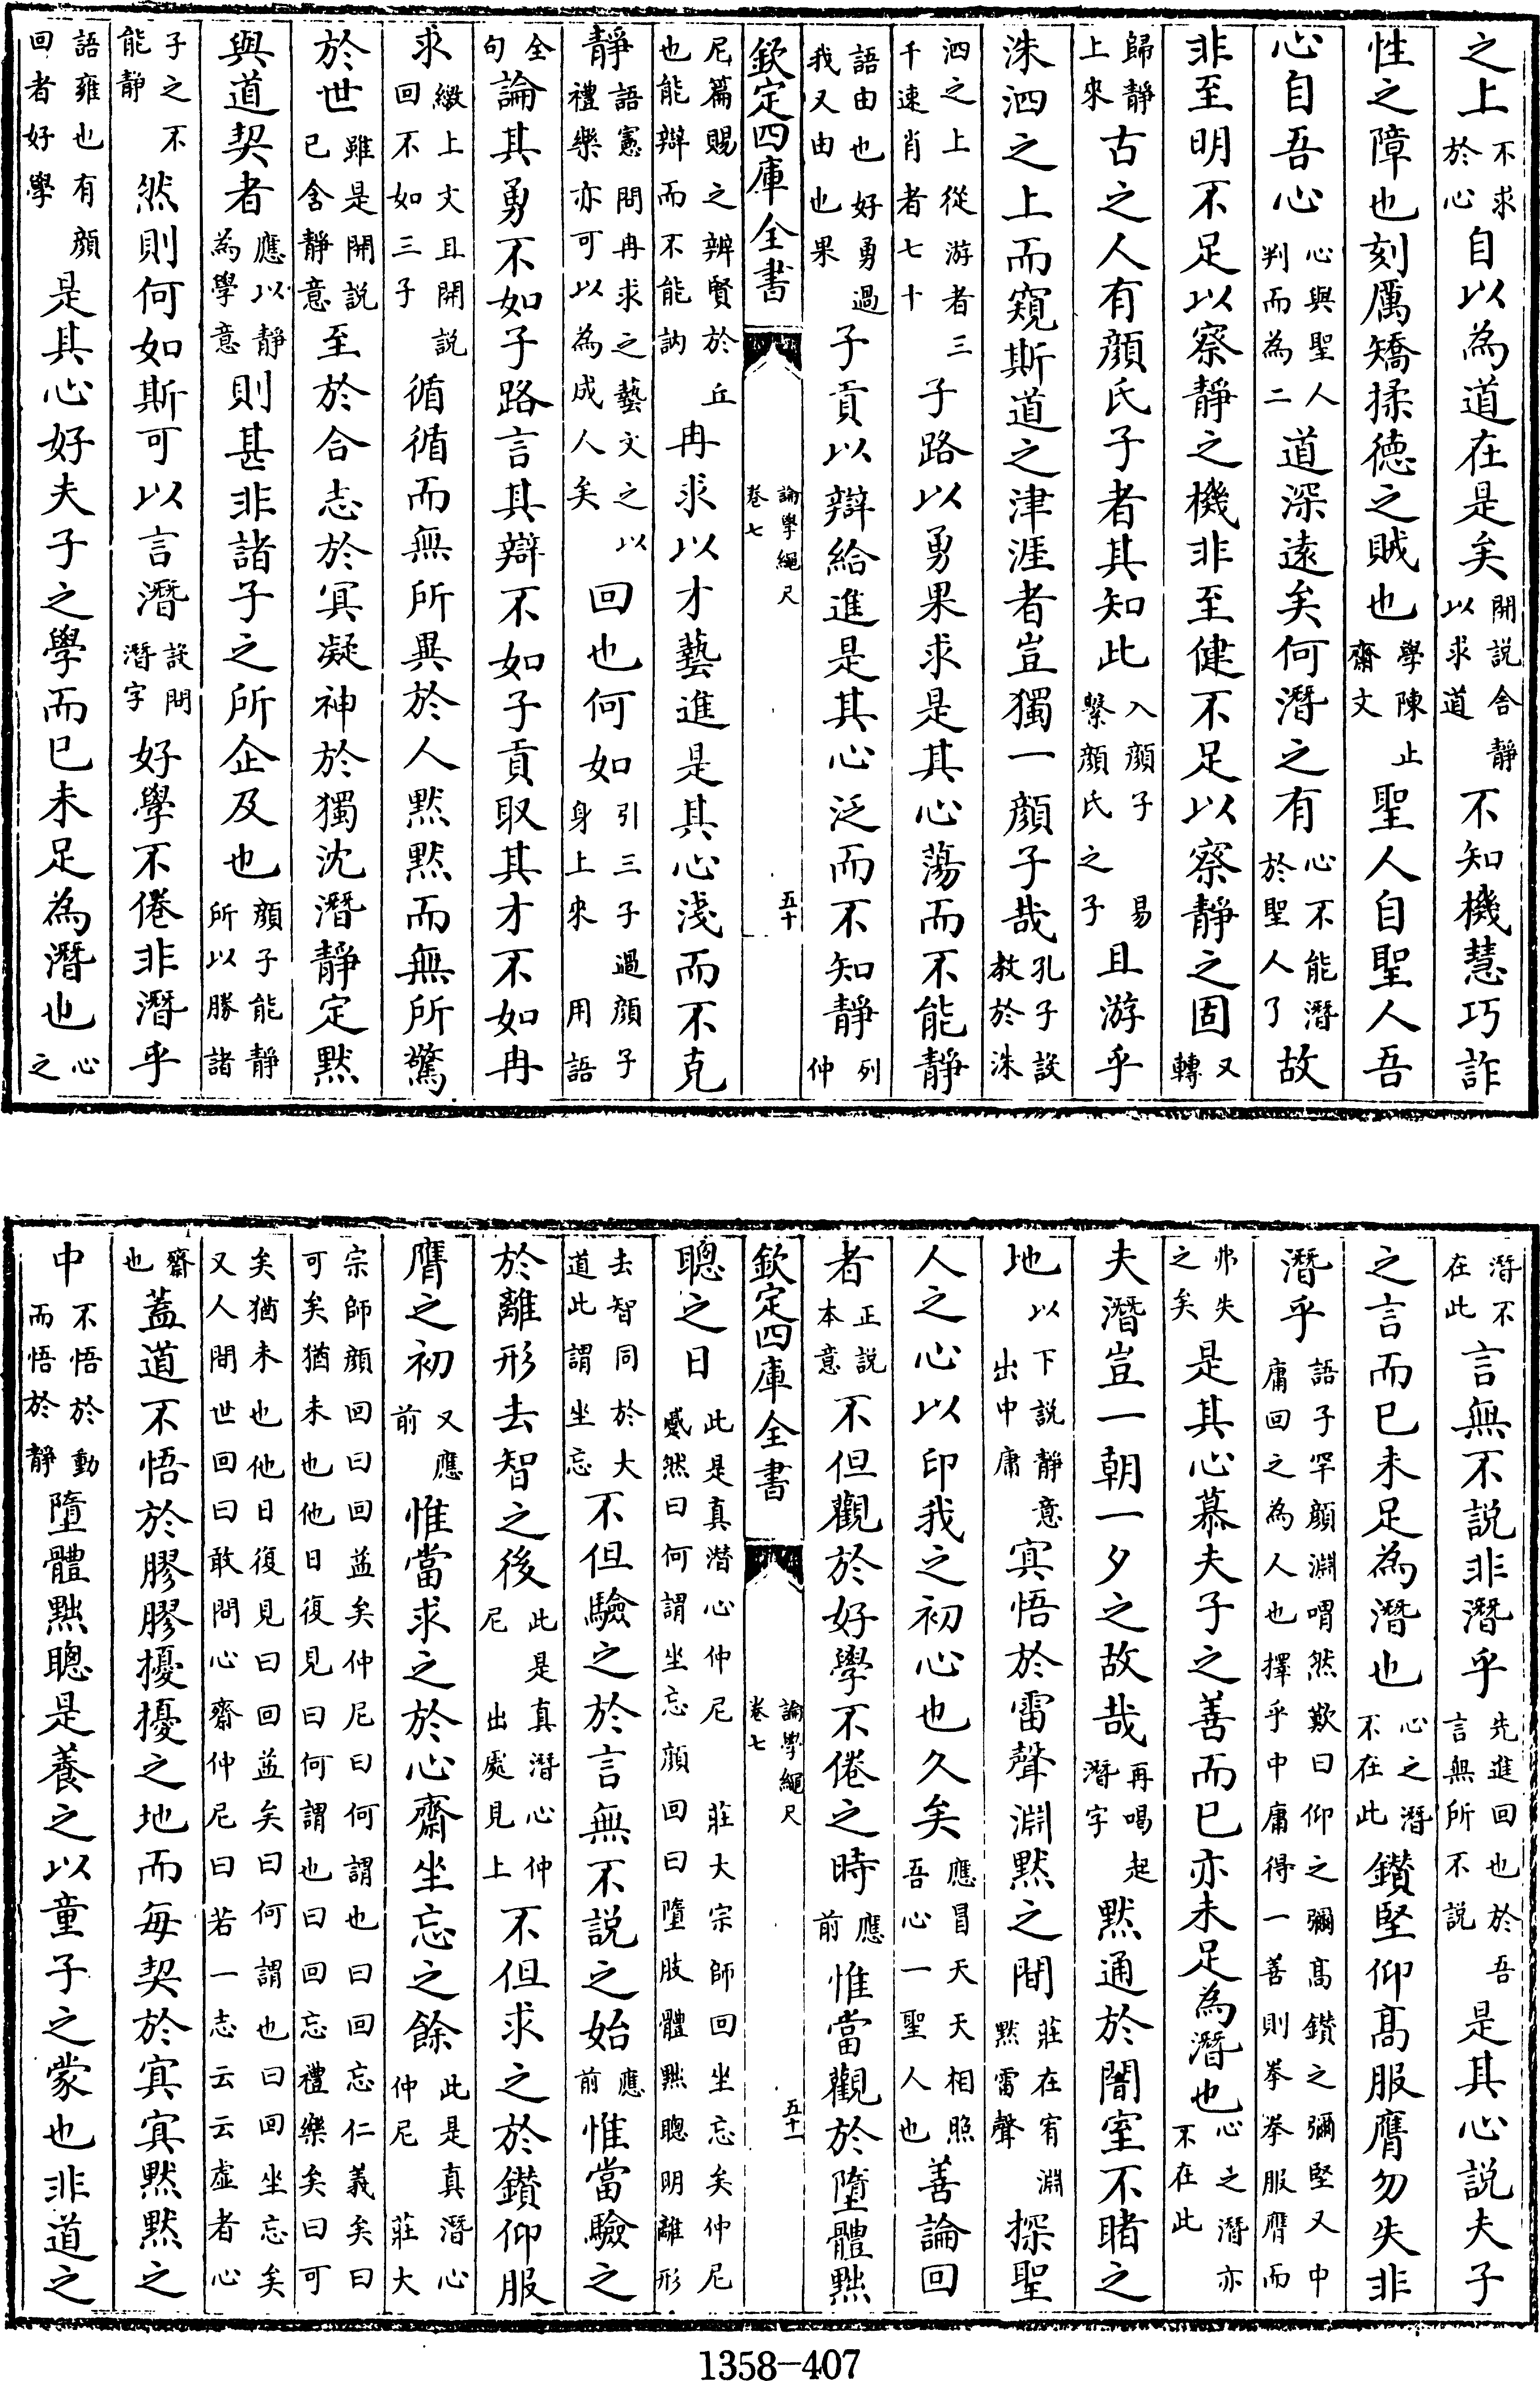 之上不求於心自以為道在是矣開説舍静以求道不知機慧巧詐
性之障也刻厲矯揉徳之賊也學陳止齋文聖人自聖人吾
心自吾心心與聖人判而為二道深逺矣何潛之有心不能潛於聖人了故
非至明不足以察靜之機非至健不足以察靜之固又轉
歸静上來古之人有顔氏子者其知此入顔子易繫顔氏之子且游乎
洙泗之上而窺斯道之津涯者豈獨一顔子哉孔子設教於洙
泗之上從游者三千速肖者七十子路以勇果求是其心蕩而不能静
語由也好勇過我又由也果子貢以辯給進是其心泛而不知靜列仲
欽定四庫全書 論學繩尺 卷七 五十
尼篇賜之辨賢於丘也能辯而不能訥冉求以才藝進是其心淺而不克
靜語憲問冉求之藝文之以禮樂亦可以為成人矣回也何如引三子過顔子身上來用語
全句論其勇不如子路言其辯不如子貢取其才不如冉
求繳上文且開説回不如三子循循而無所異於人黙黙而無所驚
於世雖是開説已含静意至於合志於冥凝神於獨沈潛靜定黙
與道契者應以静為學意則甚非諸子之所企及也顔子能静所以勝諸
子之不能靜然則何如斯可以言潛設問潛字好學不倦非潛乎
語雍也有顔回者好學是其心好夫子之學而已未足為潛也心之
潛不在此言無不説非潛乎先進回也於吾言無所不説是其心説夫子
之言而已未足為潛也心之潛不在此鑽堅仰髙服膺勿失非
潛乎語子罕顔淵喟然歎曰仰之彌髙鑚之彌堅又中庸回之為人也擇乎中庸得一善則拳拳服膺而
弗失之矣是其心慕夫子之善而已亦未足為潛也心之潛亦不在此
夫潛豈一朝一夕之故哉再喝起潛字黙通於闇室不睹之
地以下説静意出中庸㝠悟於雷聲淵黙之間莊在宥淵黙雷聲探聖
人之心以印我之初心也久矣應冒天天相照吾心一聖人也善論回
者正説本意不但觀於好學不倦之時應前惟當觀於墮體黜
欽定四庫全書 論學繩尺 卷七 五十一
聰之日此是真潜心仲尼莊大宗師回坐忘矣仲尼蹙然曰何謂坐忘顔回曰墮肢體黜聰明離形
去智同於大道此謂坐忘不但驗之於言無不説之始應前惟當驗之
於離形去智之後此是真潛心仲尼出處見上不但求之於鑽仰服
膺之初又應前惟當求之於心齋坐忘之餘此是真潛心仲尼莊大
宗師顔回曰回益矣仲尼曰何謂也曰回忘仁義矣曰可矣猶未也他日復見曰何謂也曰回忘禮樂矣曰可
矣猶未也他日復見曰回益矣曰何謂也曰回坐忘矣又人間世回曰敢問心齋仲尼曰若一志云云虚者心
齋也蓋道不悟於膠膠擾擾之地而每契於㝠㝠黙黙之
中不悟於動而悟於静墮體黜聰是養之以童子之蒙也非道之
1358-407